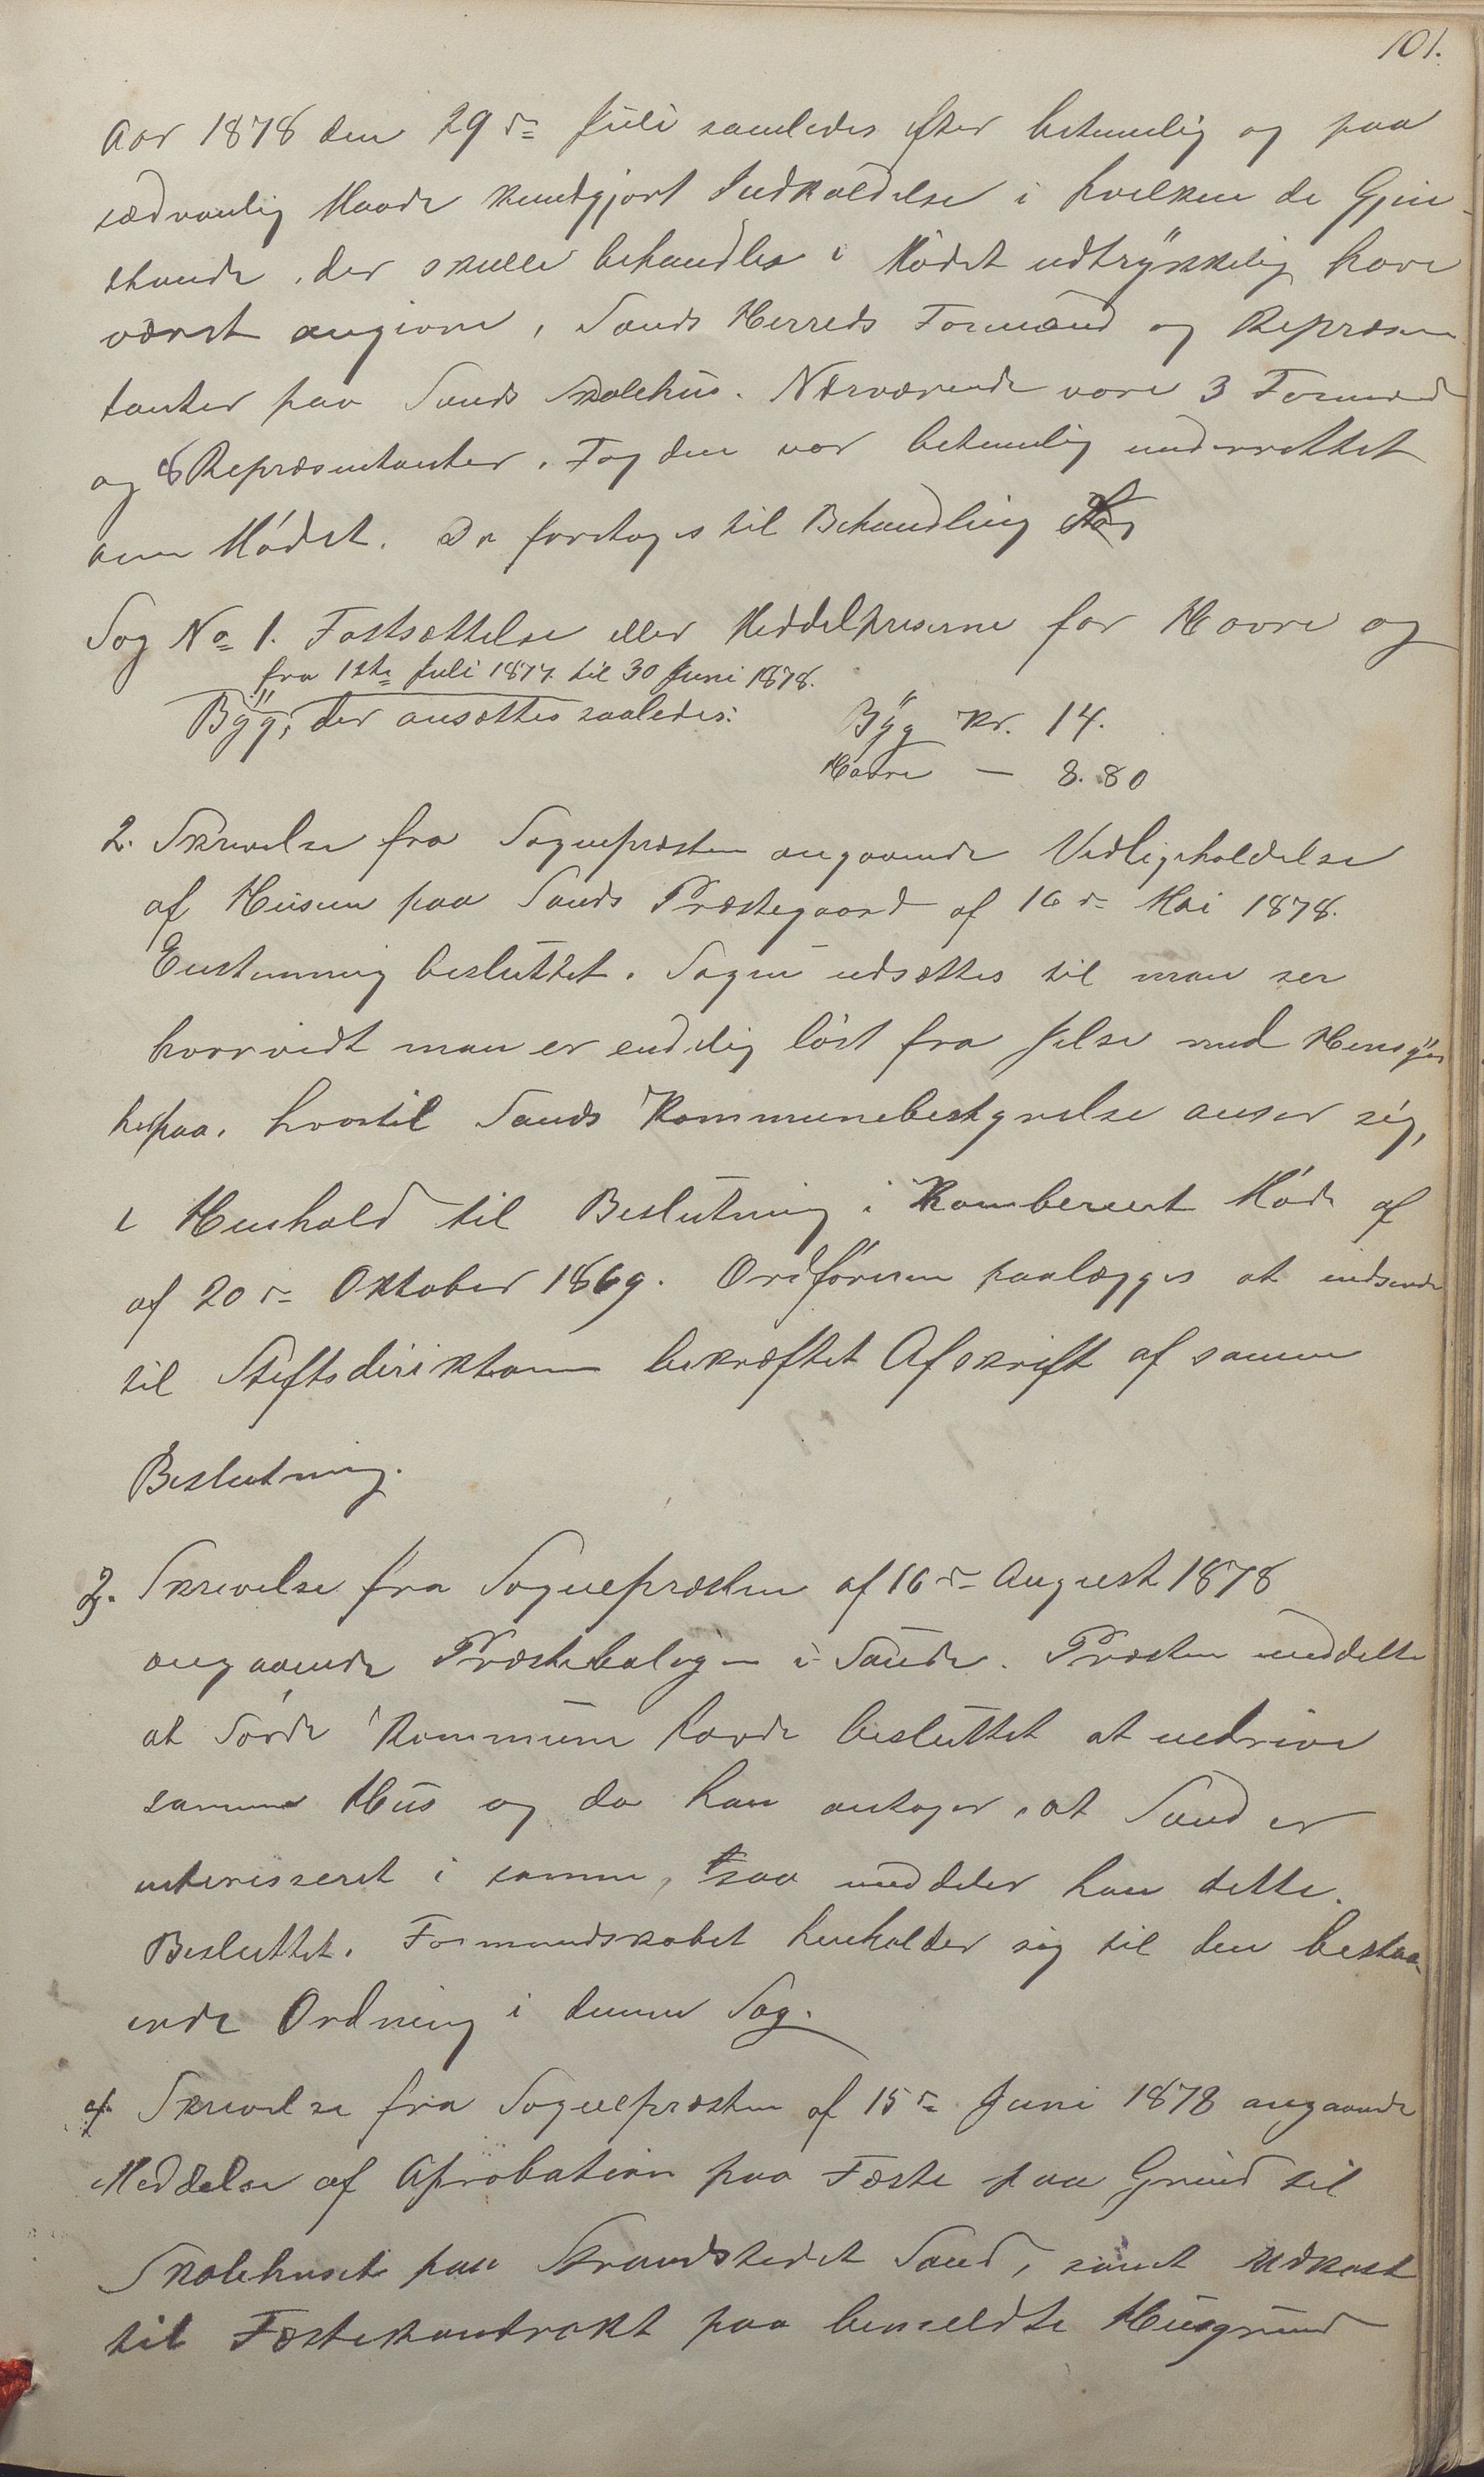 101.
Aar 1878 den 29de Juli samledes efter betimelig og paa
sædvanlig Maade kundgjort Indkaldelse i hvilken de Gjen-
stande, der skulle behandles i Mødet udtrykkelig have
været angivne, Sands Herreds Formænd og Repræsen
tanter paa Sands Skolehus. Nærværende vare 3 Formænd
og 8 Repræsentanter. Fogden var betimelig underrettet
om Mødet. Da foretoges til Behandling
Sag No 1. Fastsættelse eller Middelpriserne for Havre og
fra 1ste Juli 1877 til 30 Juni 1878.
Byg, der ansættes saaledes: Byg Kr. 14.
Havre — 8.80
2. Skrivelse fra Sognepræsten angaaende Vedligeholdelse
af Husene paa Sands Præstegaard af 16de Mai 1878.
Enstemmig besluttet. Sagen udsættes til man ser
hvorvidt man er endelig løst fra Jelse med Hensyn
herpaa, hvortil Sands Kommunebestyrelse anser sig,
i Henhold til Beslutning i Kombineret Møde af
af 20de Oktober 1869. Ordføreren paalægges at indsende
til Stiftsdirektionen bekræftet Afskrift af samme
Beslutning.
3. Skrivelse fra Sognepræsten af 16de August 1878
angaaende Præsteboligen i Saude. Præsten meddelte
at Søvde Kommune havde besluttet at nedrive
samme Hus og da han antager, at Sand er
interesseret i samme, saa meddeler han dette.
Besluttet. Formandskabet henholder sig til den bestaa-
ende Ordning i denne Sag.
4. Skrivelse fra Sognepræsten af 15de Juni 1878 angaaende
Meddelse af Aprobation paa Fæste paa Grund til
Skolehuset paa Strandstedet Sand, samt Udkast
til Fæstekontrakt paa bemeldte Husgrund